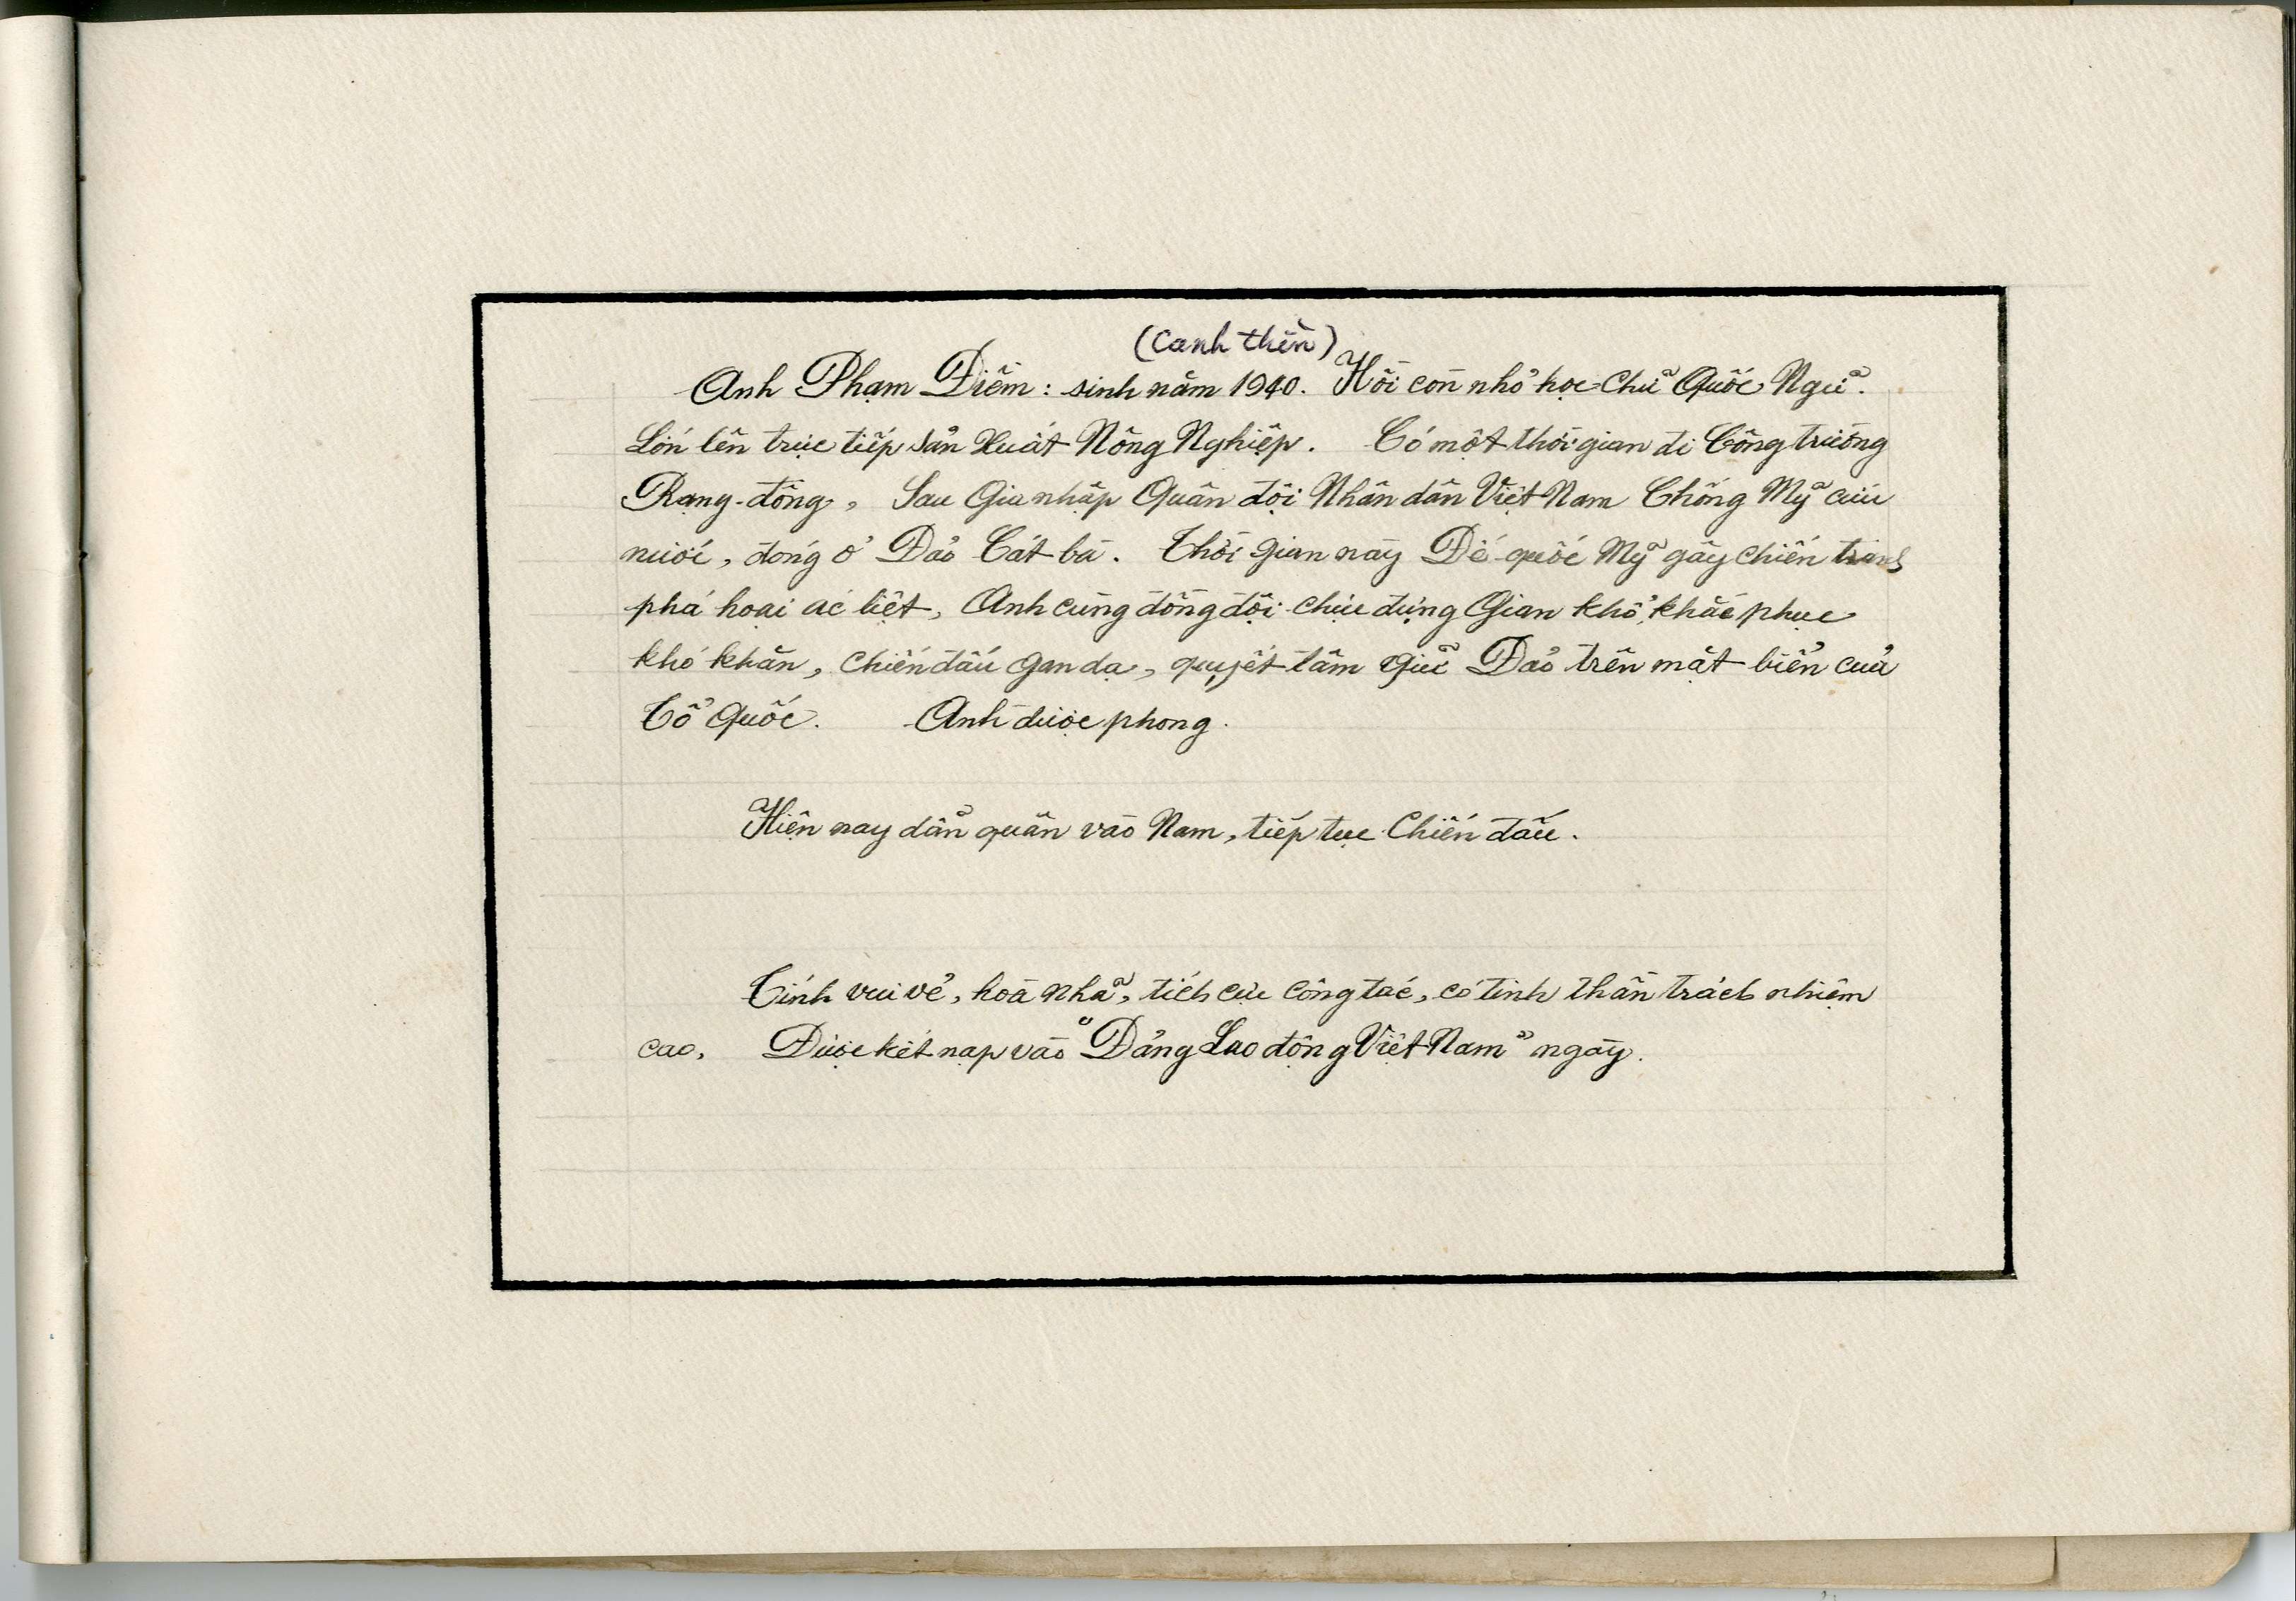 (Canh thìn)
Anh Phạm Điềm: sinh năm 1940. Hồi còn nhỏ học chữ Quốc Ngữ.
Lớn lên trực tiếp sản Xuất Nông Nghiệp. Có một thời gian đi Công trường
Rạng-đông, Sau Gia nhập Quân đội Nhân dân Việt Nam Chống Mỹ cứu
nước, đóng ở Đảo Cát-bà. Thời gian này Đế-quốc Mỹ gây chiến tranh
phá hoại ác liệt, Anh cùng đồng đội chịu đựng Gian khổ, khắc phục
khó khăn, chiến đấu gan dạ, quyết tâm giữ Đảo trên mặt biển của
Tổ Quốc. Anh được phong.
Hiện nay dẫn quân vào Nam, tiếp tục Chiến đấu.
Tính vui vẻ, hoà nhã, tích cực công tác, có tinh thần trách nhiệm
cao, Được kết nạp vào "Đảng Lao động Việt Nam" ngày.